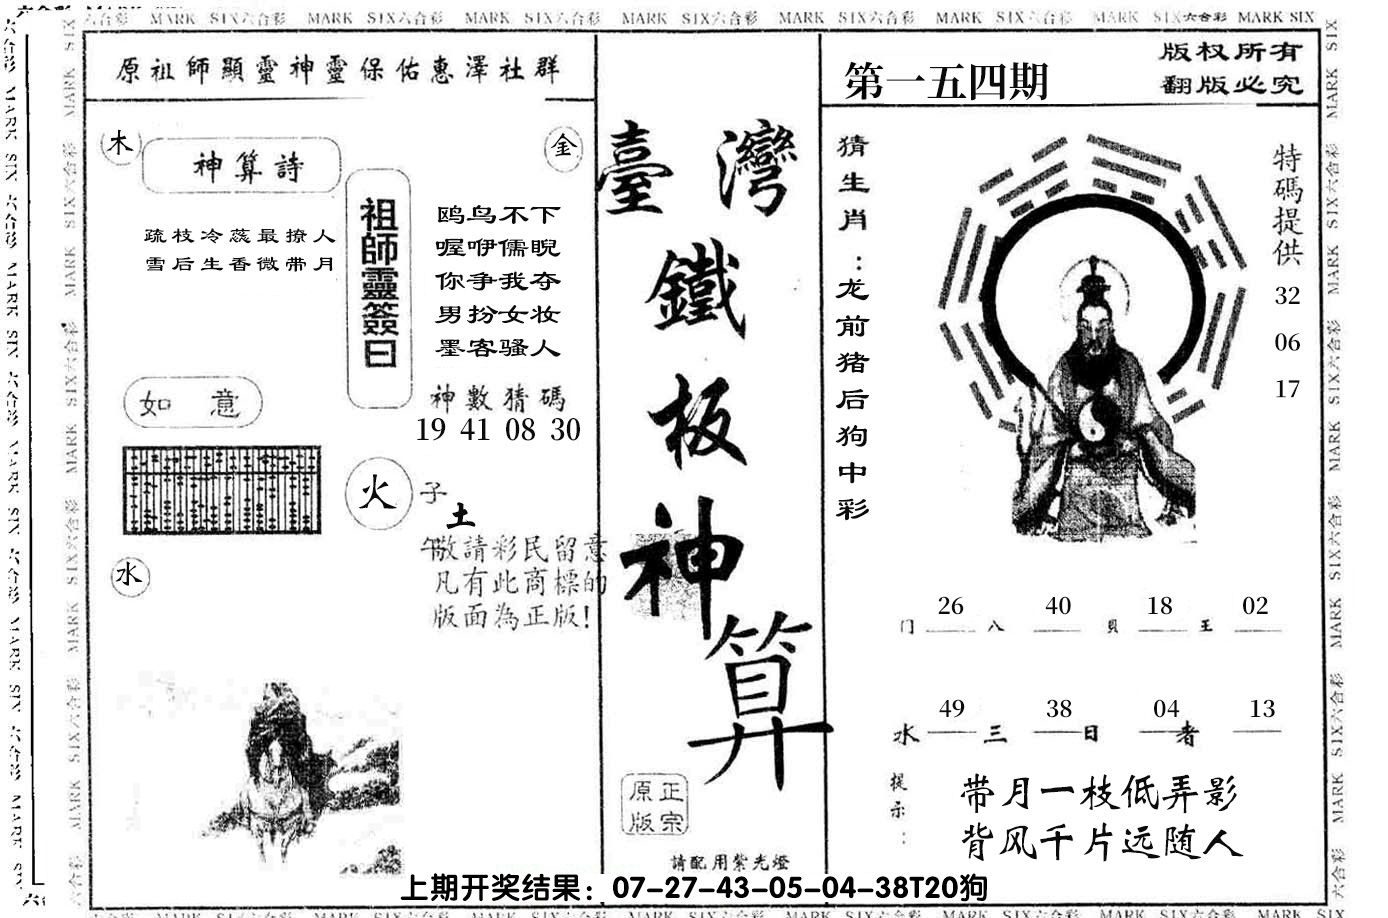 MARK SIX六合彩 MARK SIX六合彩 MARK SIX六合彩 MARK SIX六合彩 MARK SIX六合彩 MARK SIX六合彩 MARK SIX六合彩 MARK SIX
原祖師顯靈神靈保佑惠澤社群
木
神算詩
金
疏枝冷蕊最撩人
雪后生香微带月
祖師靈簽曰
鸥鸟不下
喔咿儒睨
你争我夺
男扮女妆
墨客骚人
神數猜碼
19 41 08 30
如意
火
子
土
午
敬請彩民留意
凡有此商標的
版面為正版!
水
臺灣
鐵
板
神
算
正宗
原版
請配用紫光燈
第一五四期
版权所有
翻版必究
猜生肖：龙前猪后狗中彩
特碼提供
32
06
17
26 40 18 02
门 八 貝 王
49 38 04 13
水 三 日 者
提示：
带月一枝低弄影
背风千片远随人
上期开奖结果：07-27-43-05-04-38T20狗